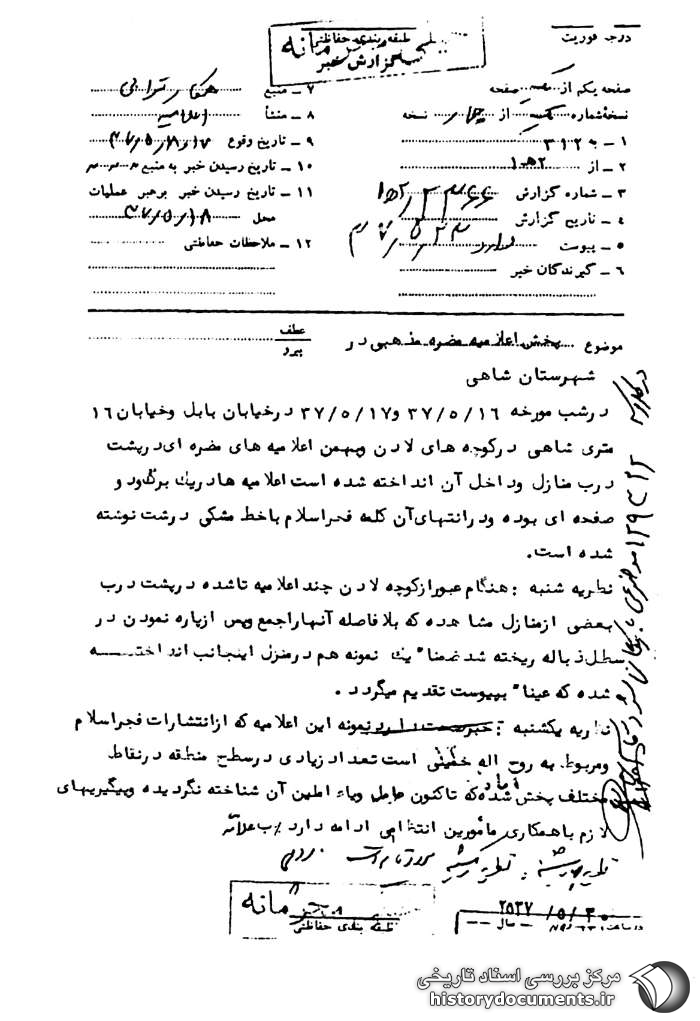 درجه فوریت
طبقه بندی حفاظتی
محرمانه
گزارش خبر
صفحه یکم از یک صفحه
نسخهٔ شماره یک از چهار نسخه
۱ – به ۳۱۲
۲ – از ۱ه۲
۳ – شماره گزارش
۴ – تاریخ گزارش
۵ – پیوست دارد
۶ – گیرندگان خبر
۷ – منبع همکار
۸ – منشأ اعلامیه
۹ – تاریخ وقوع ۳۷/۵/۱۷
۱۰ – تاریخ رسیدن خبر به منبع
۱۱ – تاریخ رسیدن خبر برهبر عملیات
محل ۳۷/۵/۱۸
۱۲ – ملاحظات حفاظتی
موضوع پخش اعلامیه مضره مذهبی در
شهرستان شاهی
عطف
پیرو
درشب مورخه ۳۷/۵/۱۶ و ۳۷/۵/۱۷ درخیابان بابل وخیابان ۱۶
متری شاهی درکوچه های لادن وبهمن اعلامیه های مضره ای درپشت
درب منازل وداخل آن انداخته شده است اعلامیه ها دریك برگ ود و
صفحه ای بوده ودرانتهای آن کلمه فجراسلام باخط مشکی درشت نوشته
شده است.
نظریه شنبه : هنگام عبورازکوچه لادن چند اعلامیه تاشده درپشت درب
بعضی ازمنازل مشاهده که بلافاصله آنهاراجمع وپس ازپاره نمودن در
سطل زباله ریخته شد ضمنا" یك نمونه هم درمنزل اینجانب انداختـــه
شده که عینا" بپیوست تقدیم میگردد .
نظریه یکشنبه : خبرصحت دارد نمونه این اعلامیه که ازانتشارات فجراسلام
ومربوط به روح اله خمینی است تعداد زیادی درسطح منطقه درنقاط
مختلف پخش شده که تاکنون عامل ویاعاملین آن شناخته نگردیده وپیگیریهای
لازم باهمکاری مأمورین انتظامی ادامه دارد
نظریه
محرمانه
طبقه بندی حفاظتی
۲۵۳۷/۵/۳۰
سال
مرکز بررسی اسناد تاریخی
historydocuments.ir